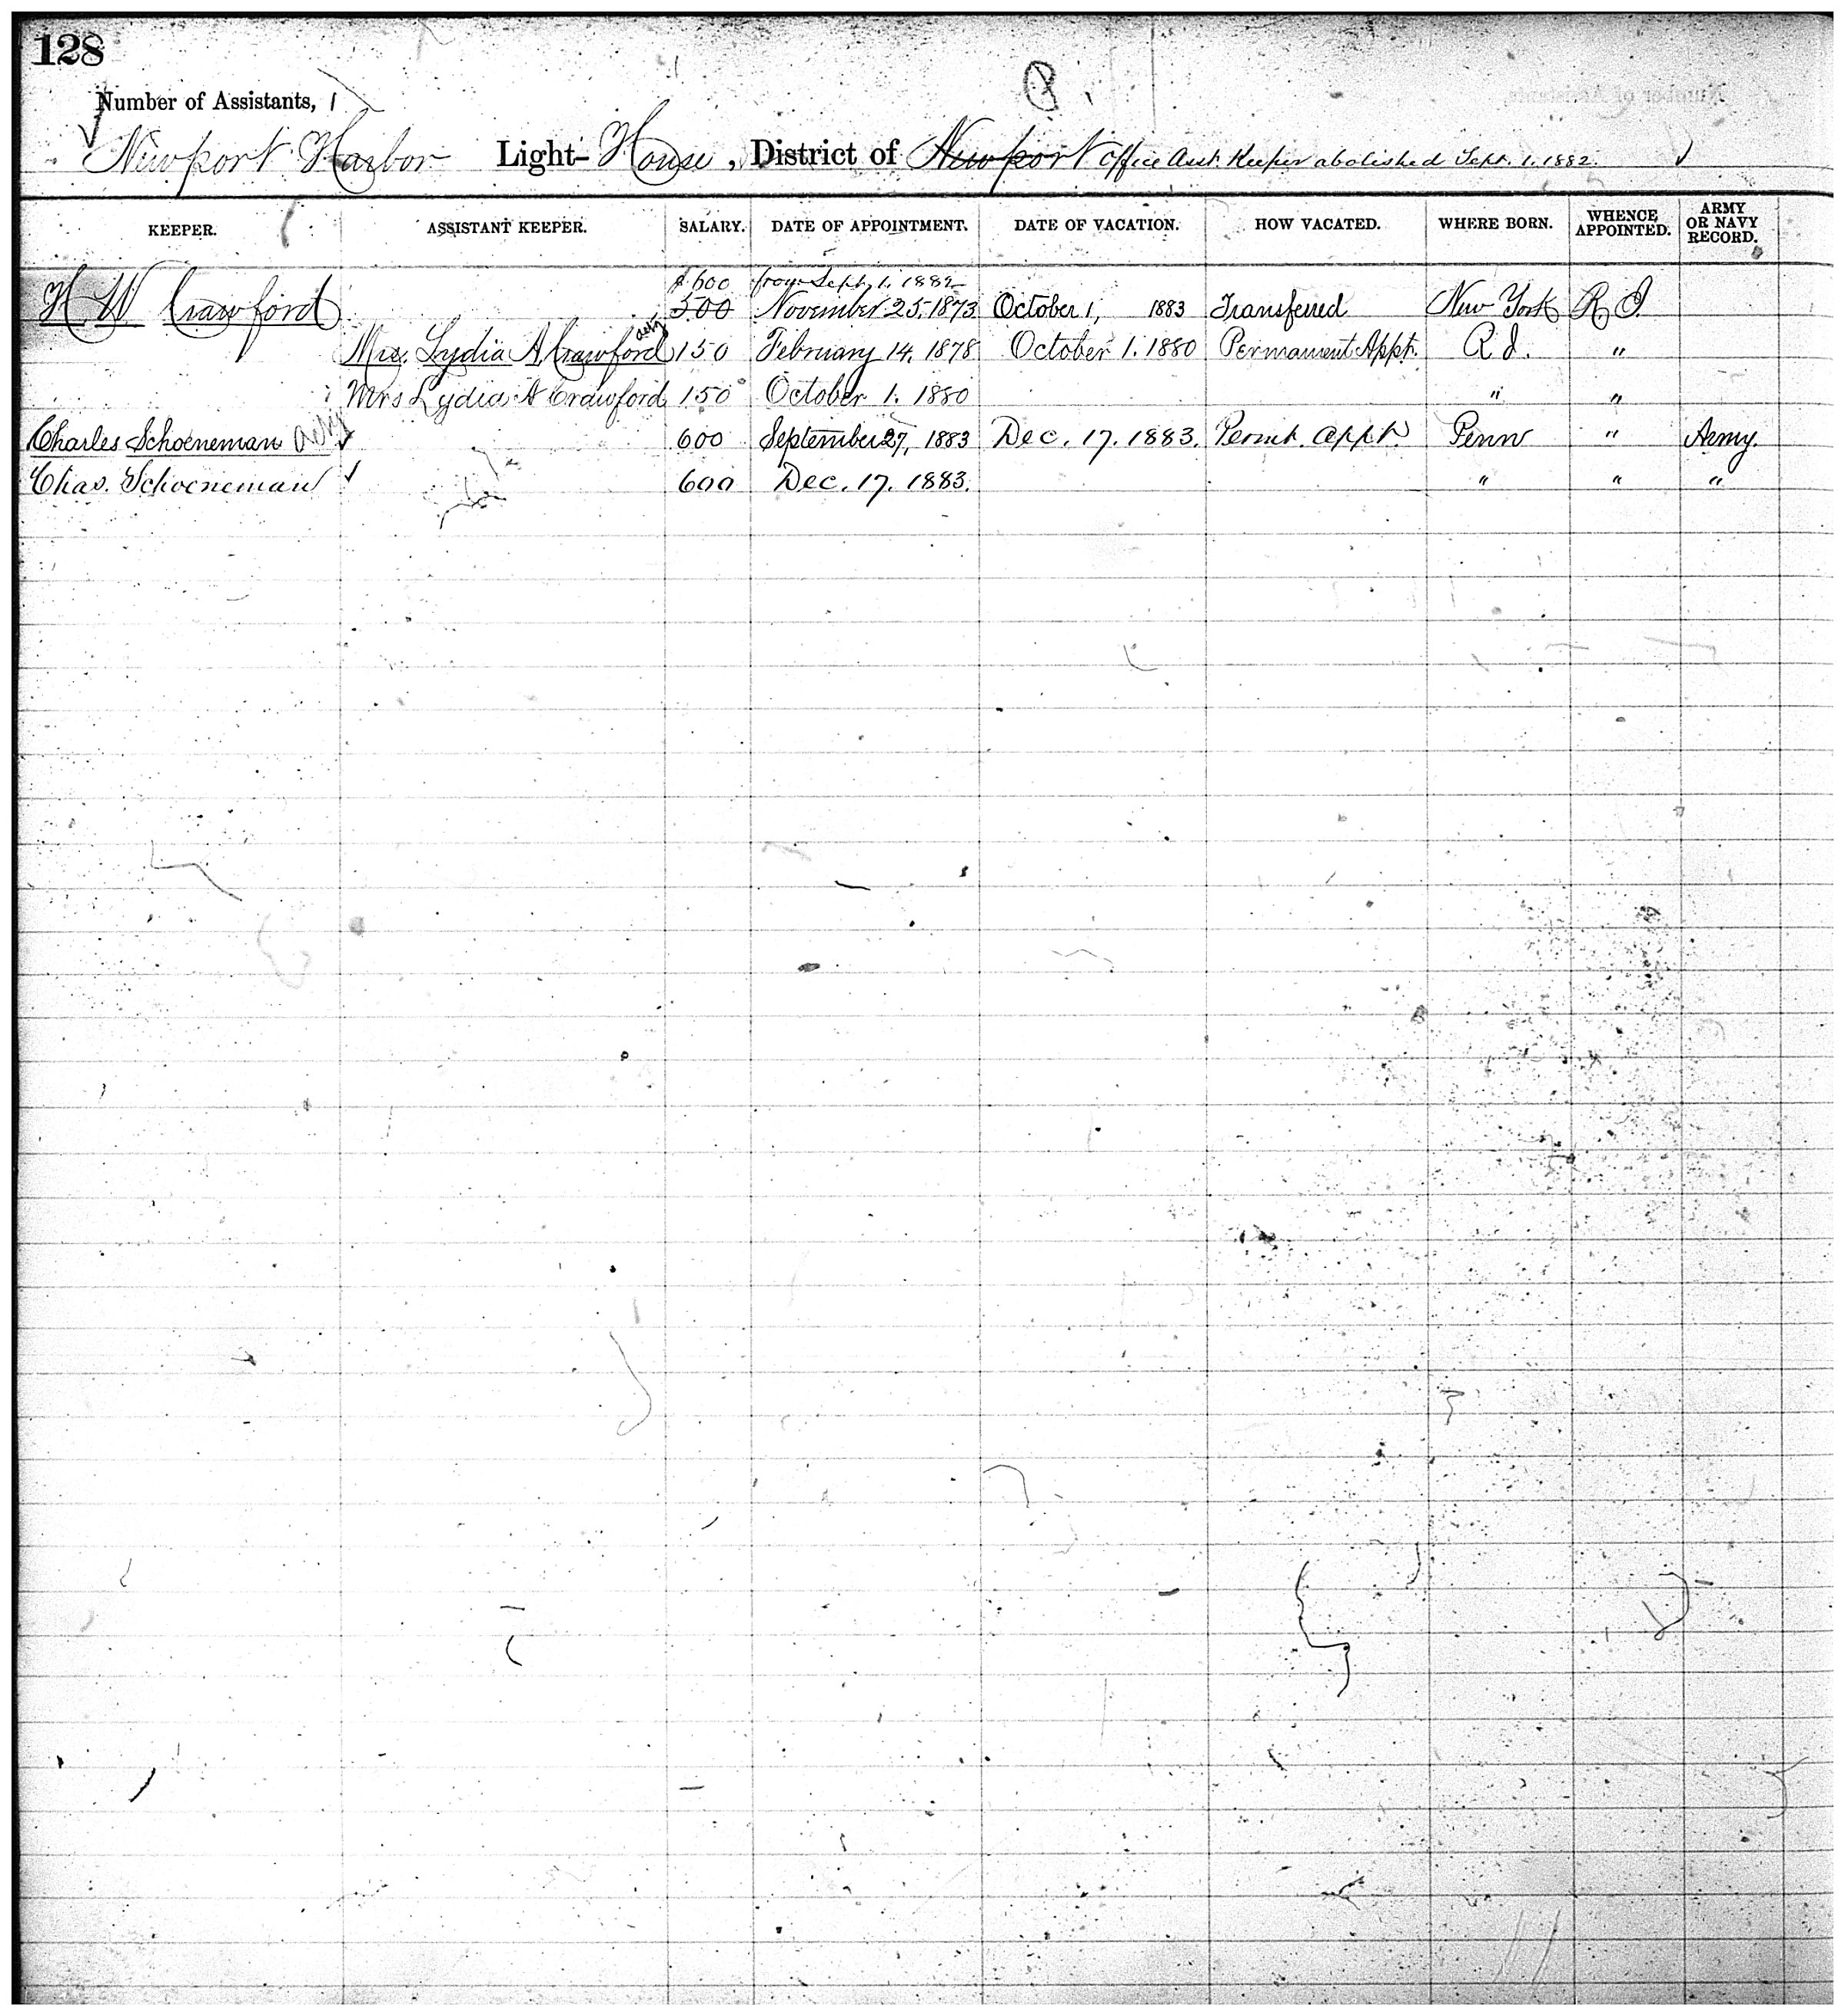 128
Number of Assistants, 1
Newport Harbor Light-House, District of Newport Office Asst. Keeper abolished Sept. 1. 1882.
KEEPER. ASSISTANT KEEPER. SALARY. DATE OF APPOINTMENT. DATE OF VACATION. HOW VACATED. WHERE BORN. WHENCE APPOINTED. ARMY OR NAVY RECORD.
$600 from Sept. 1. 1882
H W Crawford 500 November 25, 1873 October 1, 1883 Transferred New York R I.
Mrs. Lydia A Crawford actg 150 February 14. 1878 October 1. 1880 Permanent Appt. R I. "
Mrs Lydia A Crawford 150 October 1. 1880 " "
Charles Schoeneman actg 600 September 27, 1883 Dec. 17. 1883. Permt. appt. Penn " Army.
Chas. Schoeneman 600 Dec. 17. 1883. " " "